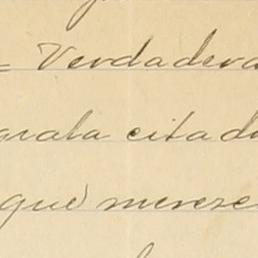 = Verdadera
arala citada
que merece